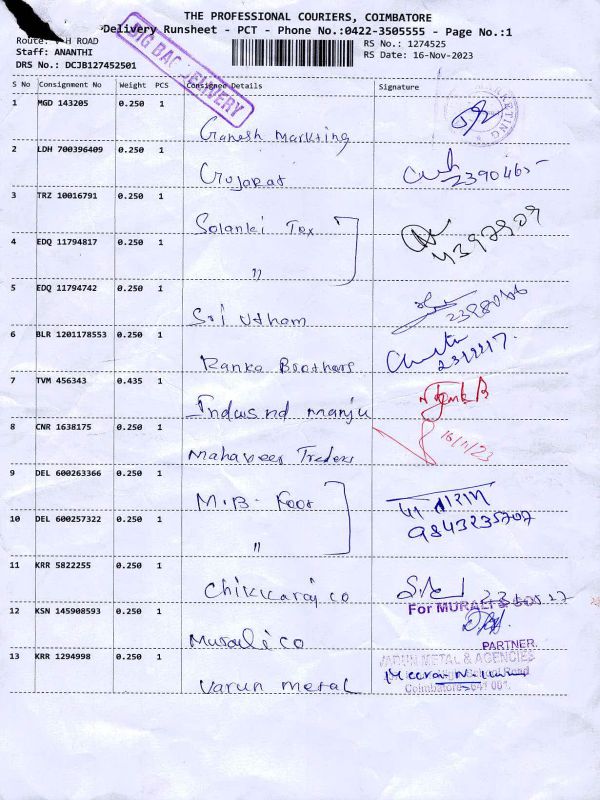 THE PROFESSIONAL COURIERS, COIMBATORE
Delivery Runsheet - PCT - Phone No.:0422-3505555 - Page No.:1
H ROAD
RS No.: 1274525
Staff: ANANTHI
RS Date: 16-Nov-2023
DRS No.: DCJB127452501
BIG BAG DELIVERY
S No Consignment No Weight PCS Consignee Details Signature
1 MGD 143205 0.250 1 Ganesh Markting
2 LDH 700396409 0.250 1 Gujarat
3 TRZ 10016791 0.250 1 Solanki Tex
4 EDQ 11794817 0.250 1 "
5 EDQ 11794742 0.250 1 Sri Utham
6 BLR 1201178553 0.250 1 Ranka Brothers
7 TVM 456343 0.435 1 Indusind manju
8 CNR 1638175 0.250 1 Mahaveer Traders 16/11/23
9 DEL 600263366 0.250 1 M.B. Foot
10 DEL 600257322 0.250 1 " 9843235707
11 KRR 5822255 0.250 1 Chikkaraj co
For MURALI & CO
12 KSN 145908593 0.250 1 Murali co
PARTNER.
13 KRR 1294998 0.250 1 Varun metal
VARUN METAL & AGENCIES
Road
Coimbatore-641 001.